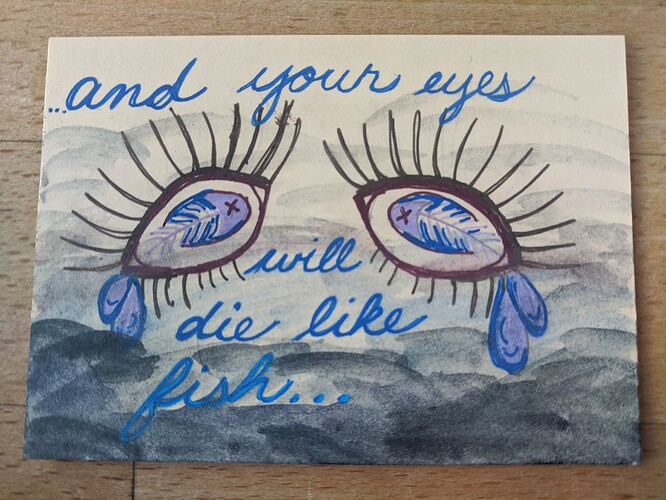 ...and your eyes
will
die like
fish...